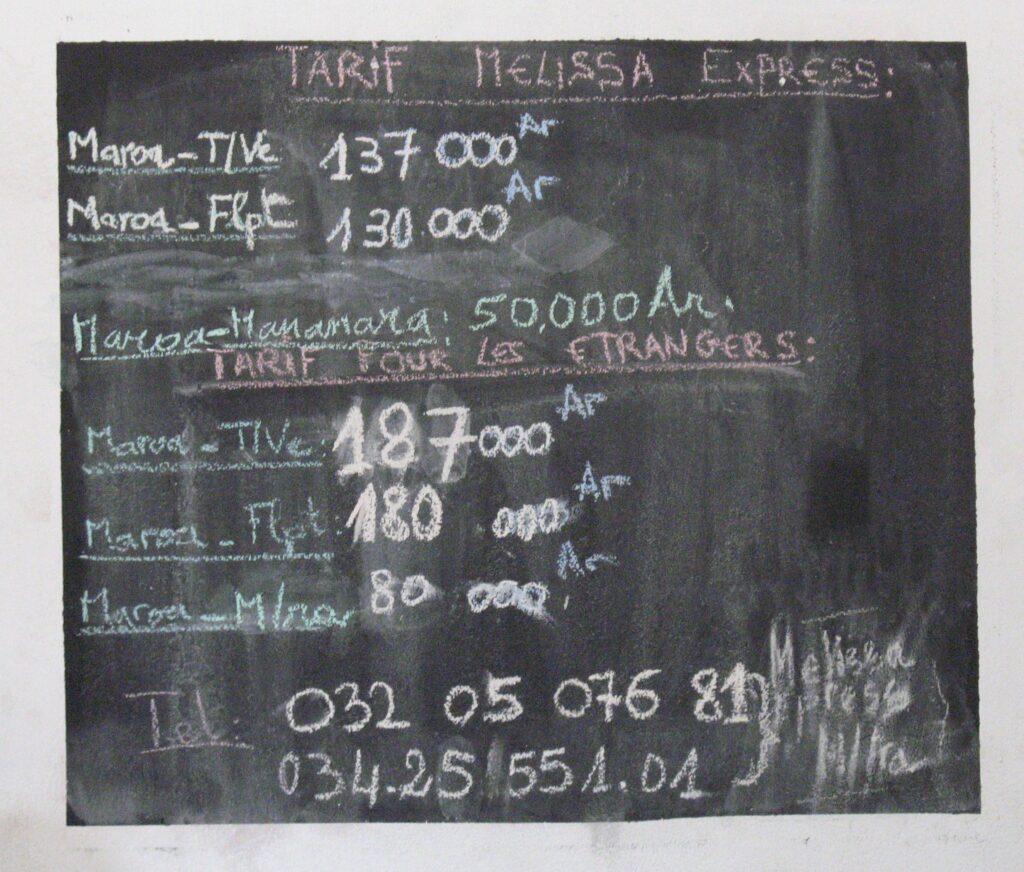 TARIF MELISSA EXPRESS:
Maroa-T/Ve 137 000 Ar
Maroa-Flpt 130.000 Ar
Maroa-Mananara: 50.000 Ar.
TARIF POUR LES ETRANGERS:
Maroa-T/Ve: 187 000 Ar
Maroa-Flpt: 180 000 Ar
Maroa-M/nar 80 000 Ar
Tel: 032 05 076 81
034.25 551.01
Melissa